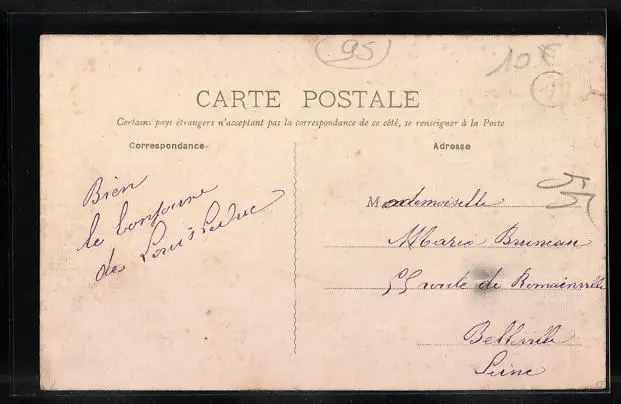 95
10 €
CARTE POSTALE
Certains pays étrangers n'acceptent pas la correspondance de ce côté, se renseigner à la Poste
Correspondance
Adresse
Bien
le bonjour
de Louis Leduc
Mademoiselle
Marie Bruneau
55 route de Romainville
Belleville
Seine